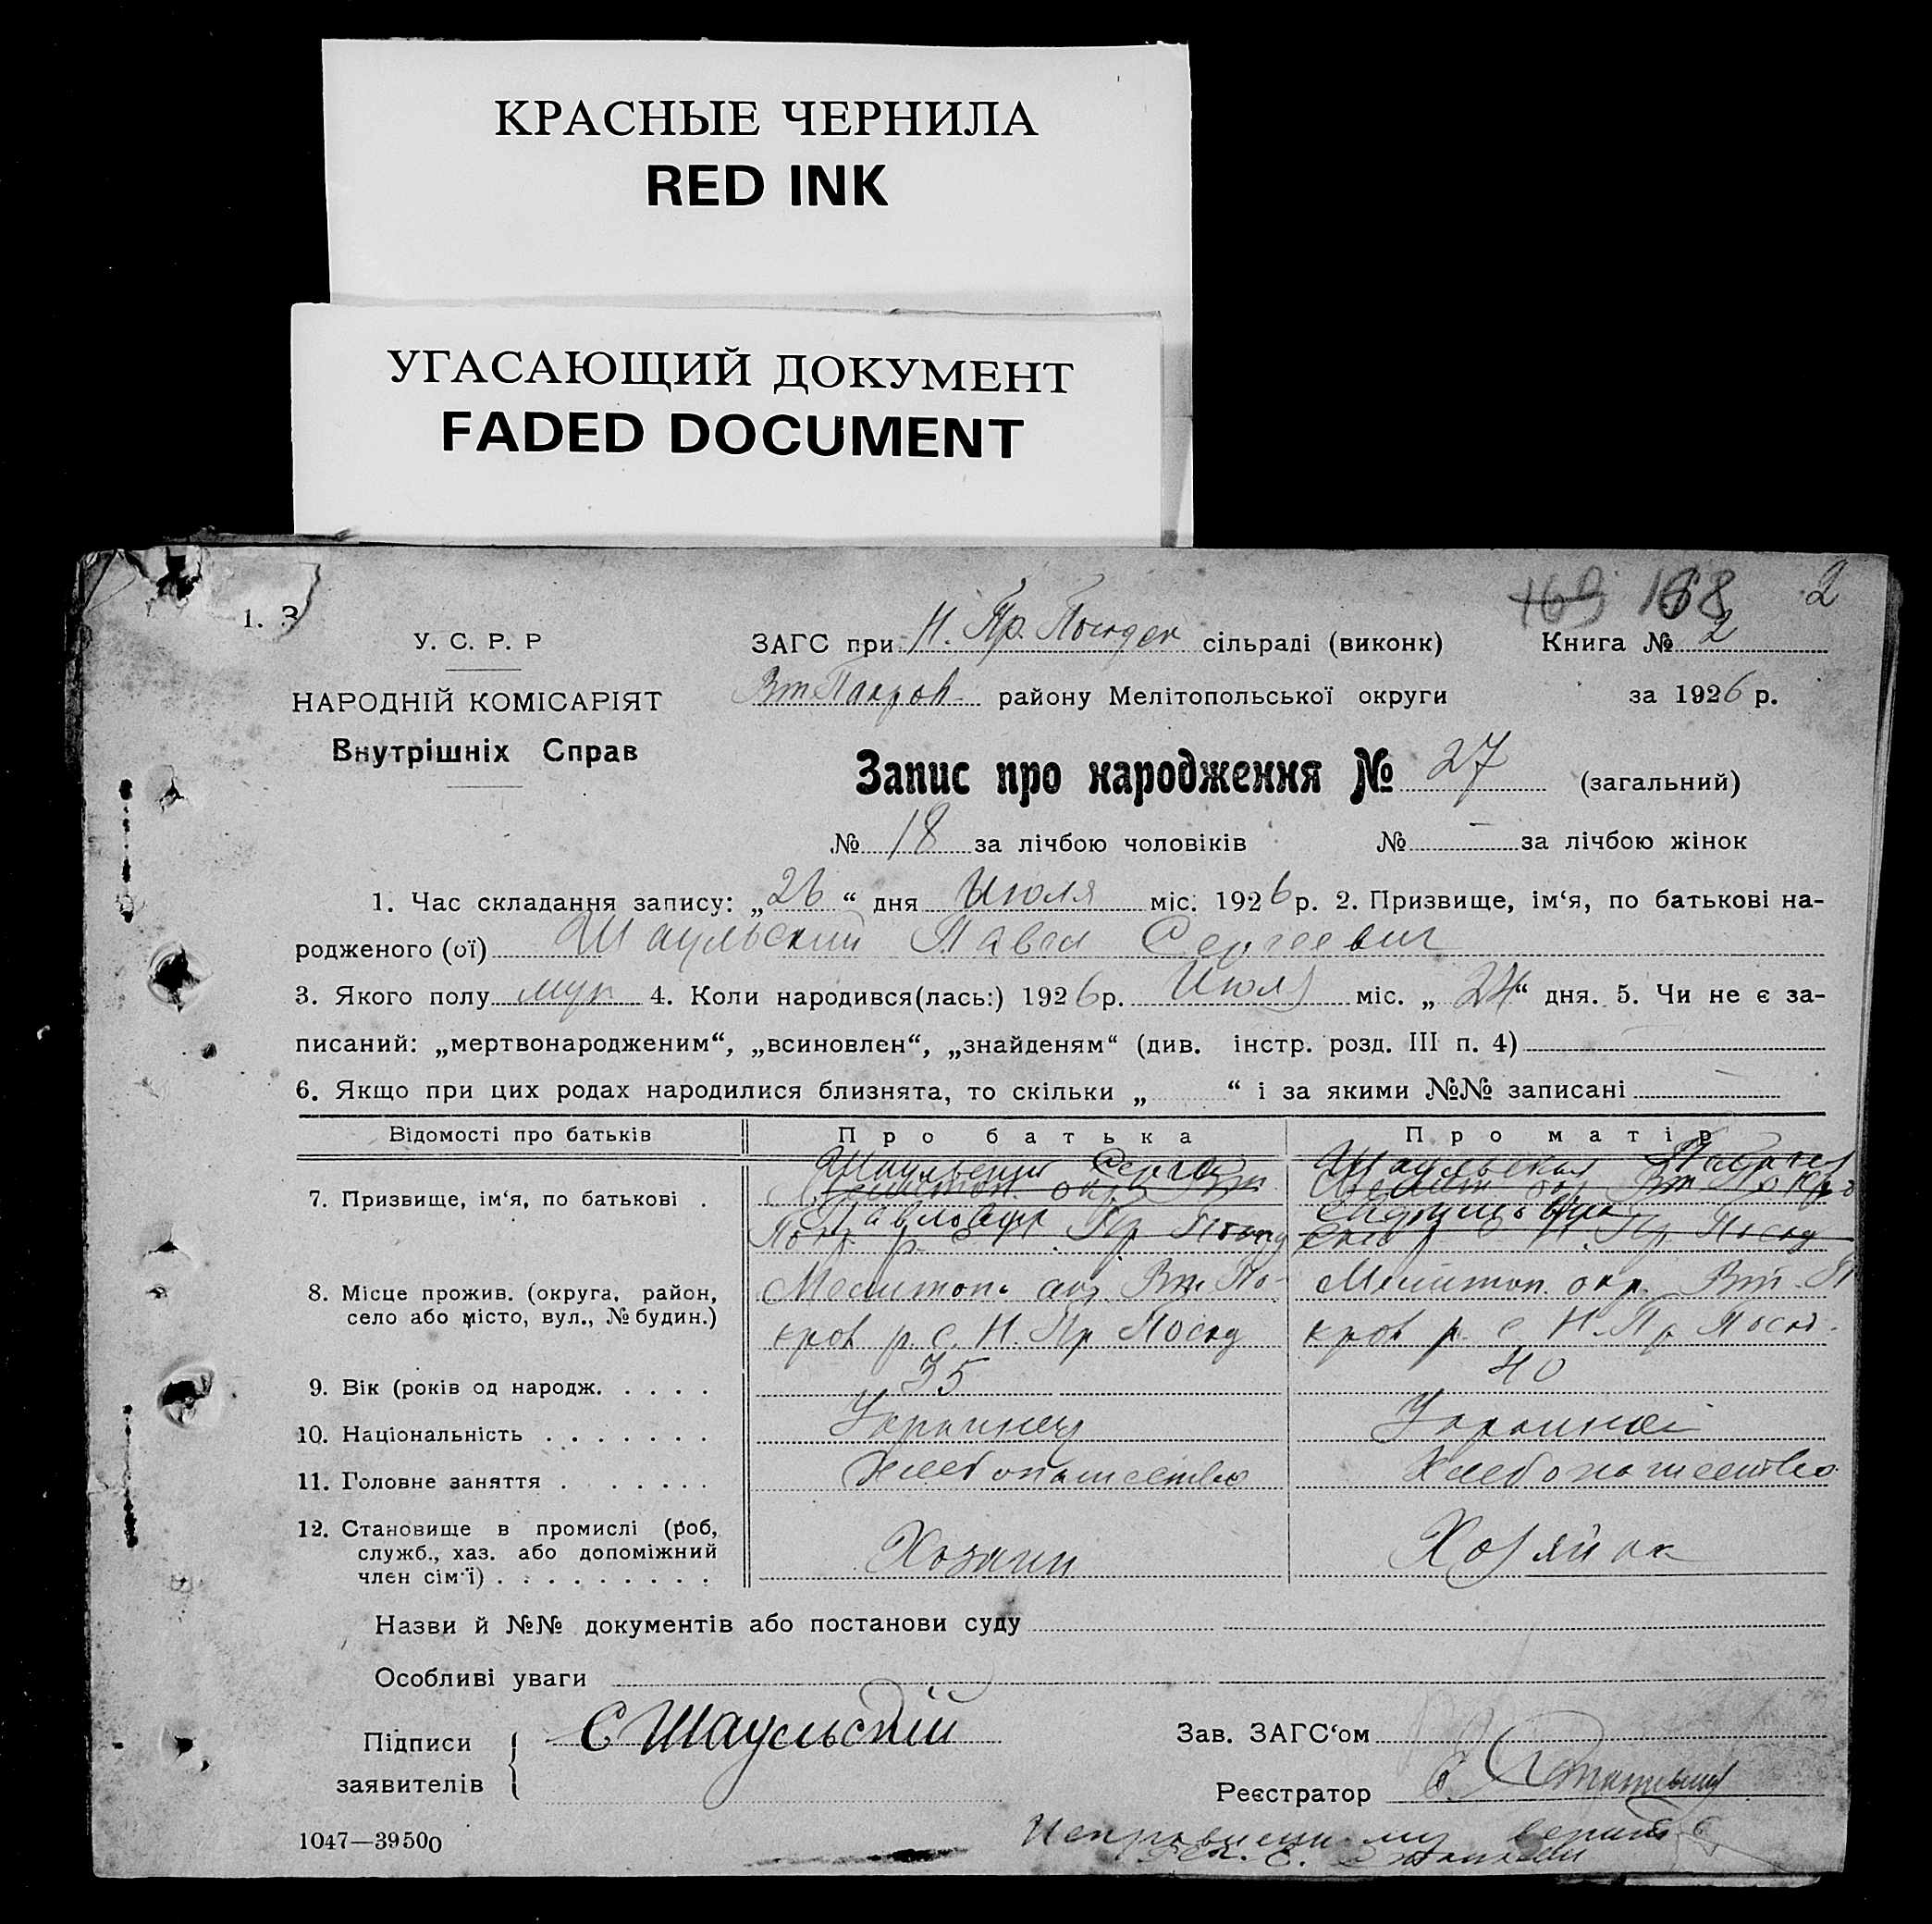 КРАСНЫЕ ЧЕРНИЛА
RED INK
УГАСАЮЩИЙ ДОКУМЕНТ
FADED DOCUMENT
169 168 2
1. 3
У. С. Р. Р
ЗАГС при Н. Пр. Посядск сільраді (виконк) Книга № 2
НАРОДНІЙ КОМІСАРІЯТ
Вт Покров району Мелітопольської округи за 1926 р.
Внутрішніх Справ
Запис про народження № 27 (загальний)
№ 18 за лічбою чоловіків № — за лічбою жінок
1. Час складання запису: „26“ дня Июля міс. 1926 р. 2. Призвище, ім‘я, по батькові на-
родженого (ої) Шаульский Павел Сергеевич
3. Якого полу муж 4. Коли народився(лась:) 1926 р. Июля міс. „24“ дня. 5. Чи не є за-
писаний: „мертвонародженим“, „всиновлен“, „знайденям“ (див. інстр. розд. III п. 4)
6. Якщо при цих родах народилися близнята, то скільки „ “ і за якими №№ записані
Відомості про батьків Про батька Про матір
7. Призвище, ім‘я, по батькові .
Шаульский Сергей
Мелитоп. окр Вт
Павлович
Покр. р. Пр Посяд
Шаульская
Мелит окр Вт Покро
Н. Пр. Посяд
8. Місце прожив. (округа, район,
село або місто, вул., № будин.)
Мелитоп. окр. Вт. По-
кров р. с. Н. Пр. Посяд
Мелитоп. окр. Вт. П
кров р. с. Н. Пр Посяд.
9. Вік (років од народж. . . . . 35 40
10. Національність . . . . . . . Украинец Украинка
11. Головне заняття . . . . . . . Хлебопашество Хлебопашество
12. Становище в промислі (роб,
служб., хаз. або допоміжний
член сім‘ї) . . . . . . . . . Хозяин Хозяйка
Назви й №№ документів або постанови суду
Особливі уваги
Підписи
заявителів
С Шаульскій
Зав. ЗАГС‘ом
Реєстратор
1047—39500
верить